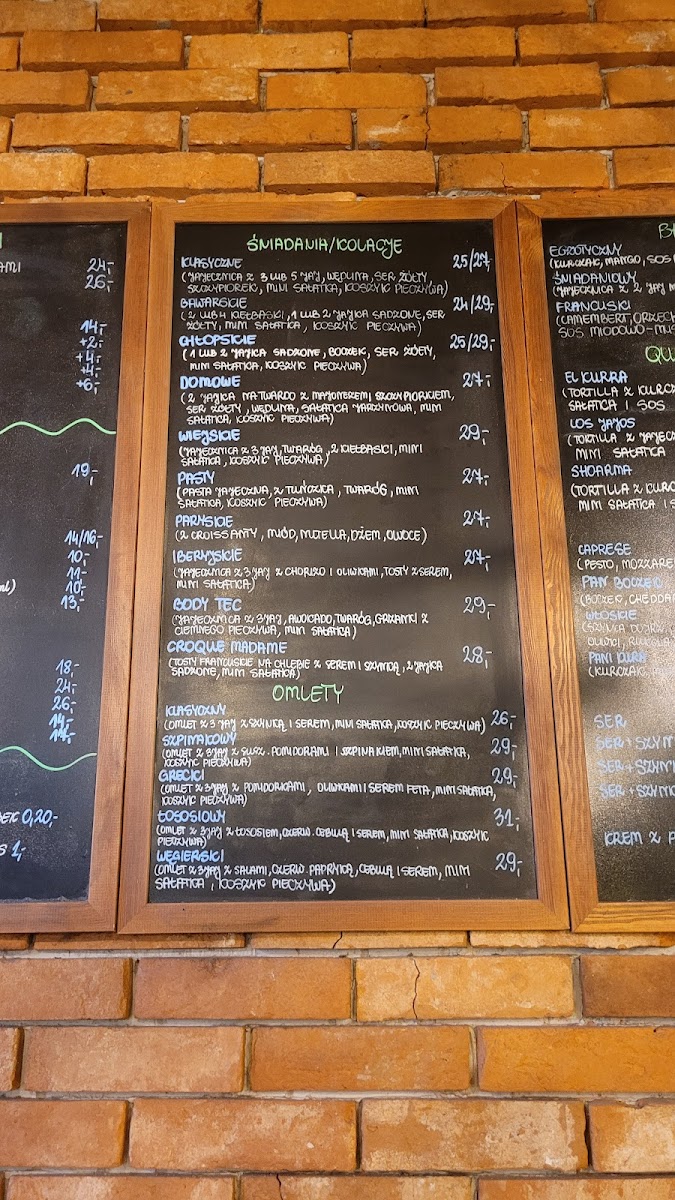 AMI 24,-
26,-
14,-
+2,-
+4,-
+4,-
+6,-
19,-
14/16,-
10,-
11,-
10,-
13,-
18,-
24,-
26,-
14,-
0,20,-
1,-
ŚNIADANIA/KOLACJE
KLASYCZNE 25/27,-
(JAJECZNICA Z 3 LUB 5 JAJ, WĘDLINA, SER ŻÓŁTY,
SZCZYPIOREK, MINI SAŁATKA, KOSZYK PIECZYWA)
BAWARSKIE 24/29,-
(2 LUB 4 KIEŁBASKI, 1 LUB 2 JAJKA SADZONE, SER
ŻÓŁTY, MINI SAŁATKA, KOSZYK PIECZYWA)
CHŁOPSKIE 25/29,-
(1 LUB 2 JAJKA SADZONE, BOCZEK, SER ŻÓŁTY,
MINI SAŁATKA, KOSZYK PIECZYWA)
DOMOWE 27,-
(2 JAJKA NA TWARDO Z MAJONEZEM I SZCZYPIORKIEM,
SER ŻÓŁTY, WĘDLINA, SAŁATKA JARZYNOWA, MINI
SAŁATKA, KOSZYK PIECZYWA)
WIEJSKIE 29,-
(JAJECZNICA Z 3 JAJ, TWARÓG, 2 KIEŁBASKI, MINI
SAŁATKA, KOSZYK PIECZYWA)
PASTY 27,-
(PASTA JAJECZNA, Z TUŃCZYKA, TWARÓG, MINI
SAŁATKA, KOSZYK PIECZYWA)
PARYSKIE 27,-
(2 CROISSANTY, MIÓD, NUTELLA, DŻEM, OWOCE)
IBERYJSKIE 27,-
(JAJECZNICA Z 3 JAJ Z CHORIZO I OLIWKAMI, TOSTY Z SEREM,
MINI SAŁATKA)
BODY TEC 29,-
(JAJECZNICA Z 3 JAJ, AWOKADO, TWARÓG, GRZANKI Z
CIEMNEGO PIECZYWA, MINI SAŁATKA)
CROQUE MADAME 28,-
(TOSTY FRANCUSKIE NA CHLEBIE Z SEREM I SZYNKĄ, 2 JAJKA
SADZONE, MINI SAŁATKA)
OMLETY
KLASYCZNY 26,-
(OMLET Z 3 JAJ Z SZYNKĄ I SEREM, MINI SAŁATKA, KOSZYK PIECZYWA)
SZPINAKOWY 29,-
(OMLET Z 3 JAJ Z SUSZ. POMIDORAMI I SZPINAKIEM, MINI SAŁATKA,
KOSZYK PIECZYWA)
GRECKI 29,-
(OMLET Z 3 JAJ Z POMIDORKAMI, OLIWKAMI I SEREM FETA, MINI SAŁATKA,
KOSZYK PIECZYWA)
ŁOSOSIOWY 31,-
(OMLET Z 3 JAJ Z ŁOSOSIEM, CZERW. CEBULĄ I SEREM, MINI SAŁATKA, KOSZYK
PIECZYWA)
WĘGIERSKI 29,-
(OMLET Z 3 JAJ Z SALAMI, CZERW. PAPRYKĄ, CEBULĄ I SEREM, MINI
SAŁATKA, KOSZYK PIECZYWA)
EGZOTYCZNY
(KURCZAK, MANGO, SOS
ŚNIADANIOWY
(JAJECZNICA Z 2 JAJ
FRANCUSKI
(CAMEMBERT, ORZECH
SOS MIODOWO-MUS
QU
EL KURRA
(TORTILLA Z KURCZ
SAŁATKA I SOS
LOS JAJOS
(TORTILLA Z JAJECZ
MINI SAŁATKA
SHOARMA
(TORTILLA Z KURC
MINI SAŁATKA I S
CAPRESE
(PESTO, MOZZARE
PAN BOCZEK
(BOCZEK, CHEDDA
WŁOSKIE
PANI KURA
(KURCZAK
SER
SER + SZYN
SER + SZYNK
SER + SZYNK
KREM Z P